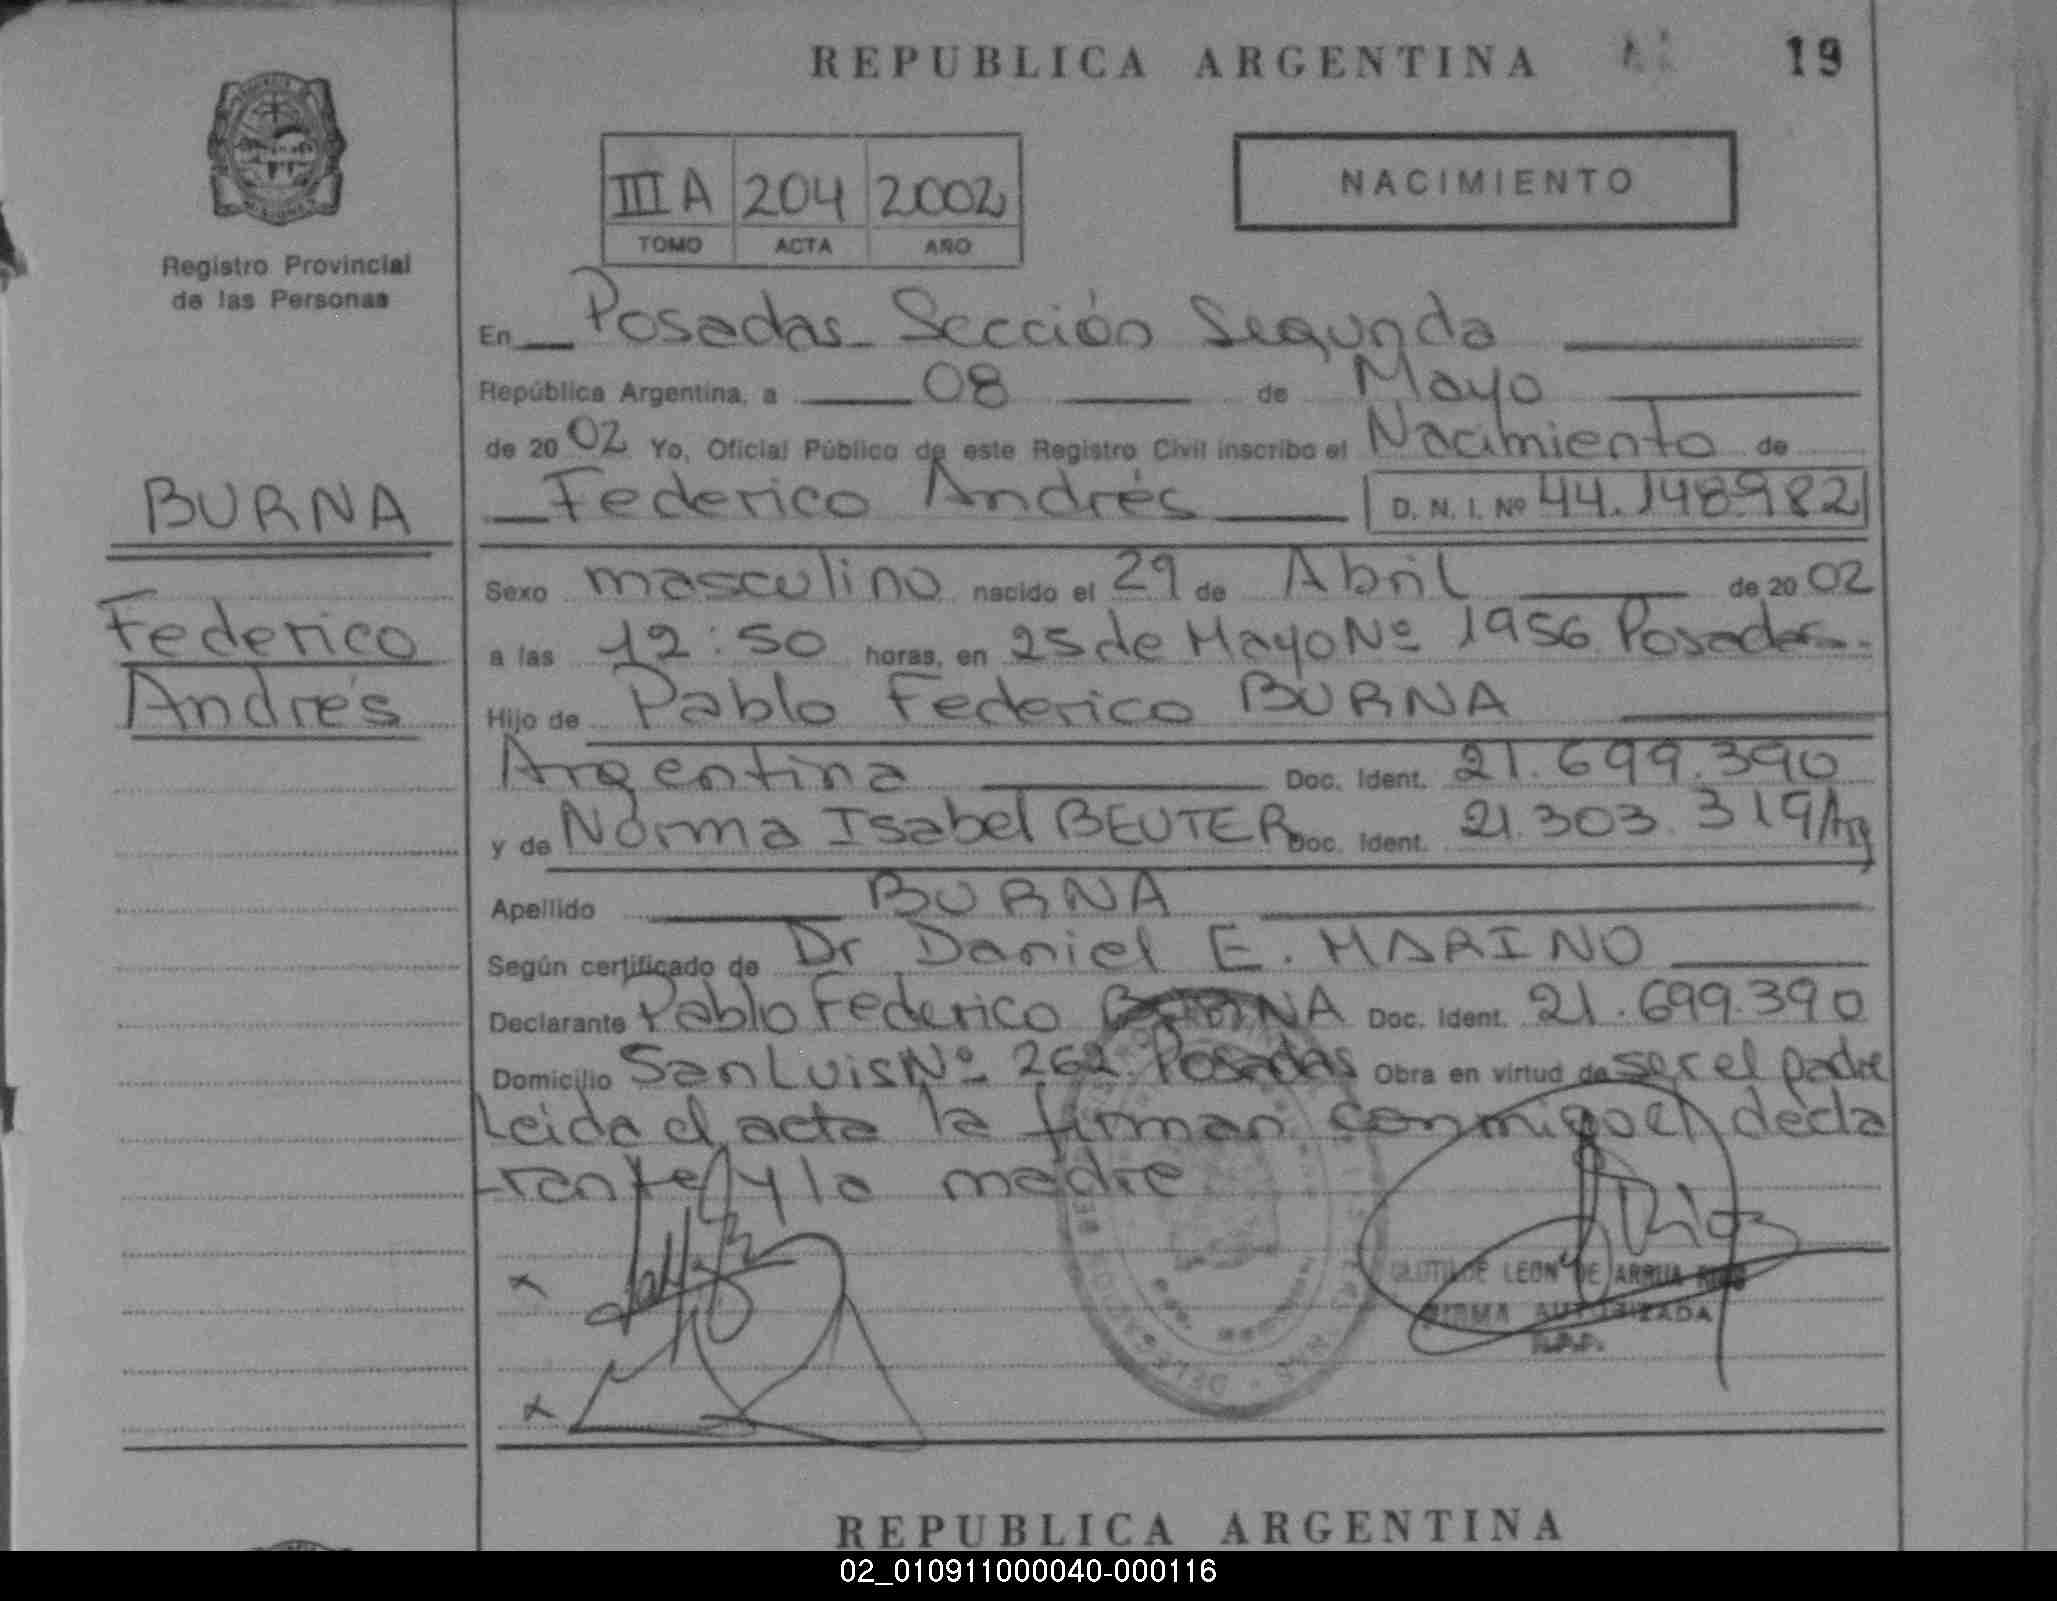 REPUBLICA ARGENTINA
19
Registro Provincial
de las Personas
III A 204 2002
TOMO ACTA AÑO
NACIMIENTO
En Posadas Sección Segunda
República Argentina, a 08 de Mayo
de 2002 Yo, Oficial Público de este Registro Civil inscribo el Nacimiento de
Federico Andrés D. N. I. Nº 44.148.982
BURNA
Federico
Andrés
Sexo masculino nacido el 29 de Abril de 2002
a las 12:50 horas, en 25 de Mayo Nº 1956 Posadas.
Hijo de Pablo Federico BURNA
Argentina Doc. Ident. 21.699.390
y de Norma Isabel BEUTER Doc. Ident. 21.303.319/Arg
Apellido BURNA
Según certificado de Dr Daniel E. MARINO
Declarante Pablo Federico BURNA Doc. Ident. 21.699.390
Domicilio San Luis Nº 262 Posadas Obra en virtud de ser el padre
Leida el acta la firman conmigo el decla
rante y la madre
x
x
LEON DE ARRUA
FIRMA AUTORIZADA
R.P.P.
REPUBLICA ARGENTINA
02_010911000040-000116